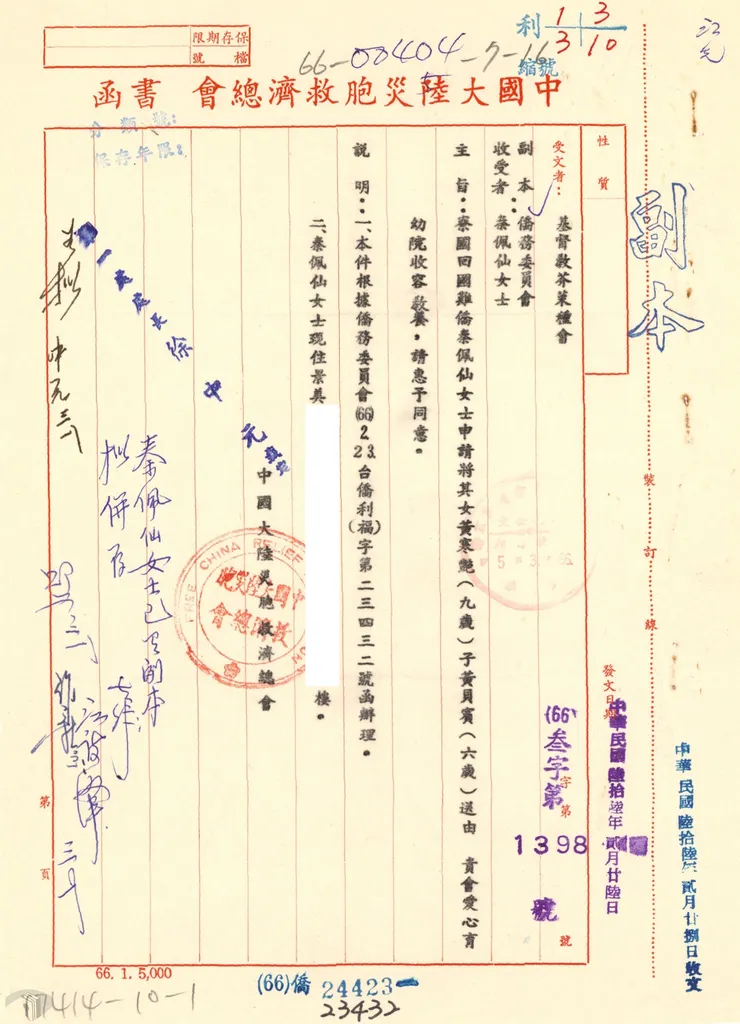 保存期限
檔號
66-00404-7-16
利
1 3
3 10
編號
中國大陸災胞救濟總會 書函
分類號:
保存年限:
副本
性質
受文者:
基督教芥菜種會
副本收受者:
僑務委員會
秦佩仙女士
主旨:寮國回國難僑秦佩仙女士申請將其女黃寒艷(九歲)子黃貝賓(六歲)送由 貴會愛心育
幼院收容教養,請惠予同意。
說明:一、本件根據僑務委員會(66)2.23.台僑利(福)字第二三四三二號函辦理。
二、秦佩仙女士現住景美
樓。
中國大陸災胞救濟總會
第一處處長徐中元
FREE CHINA RELIEF
中國大陸災胞
救濟總會
秦佩仙女士已另副本
擬併存
裝訂線
發文日期
中華民國陸拾陸年貳月廿陸日
(66)叁字第
字第
1398
號
號
中華民國陸拾陸年貳月廿捌日收文
第
頁
66. 1. 5,000
(66)僑 24423
23432
414-10-1